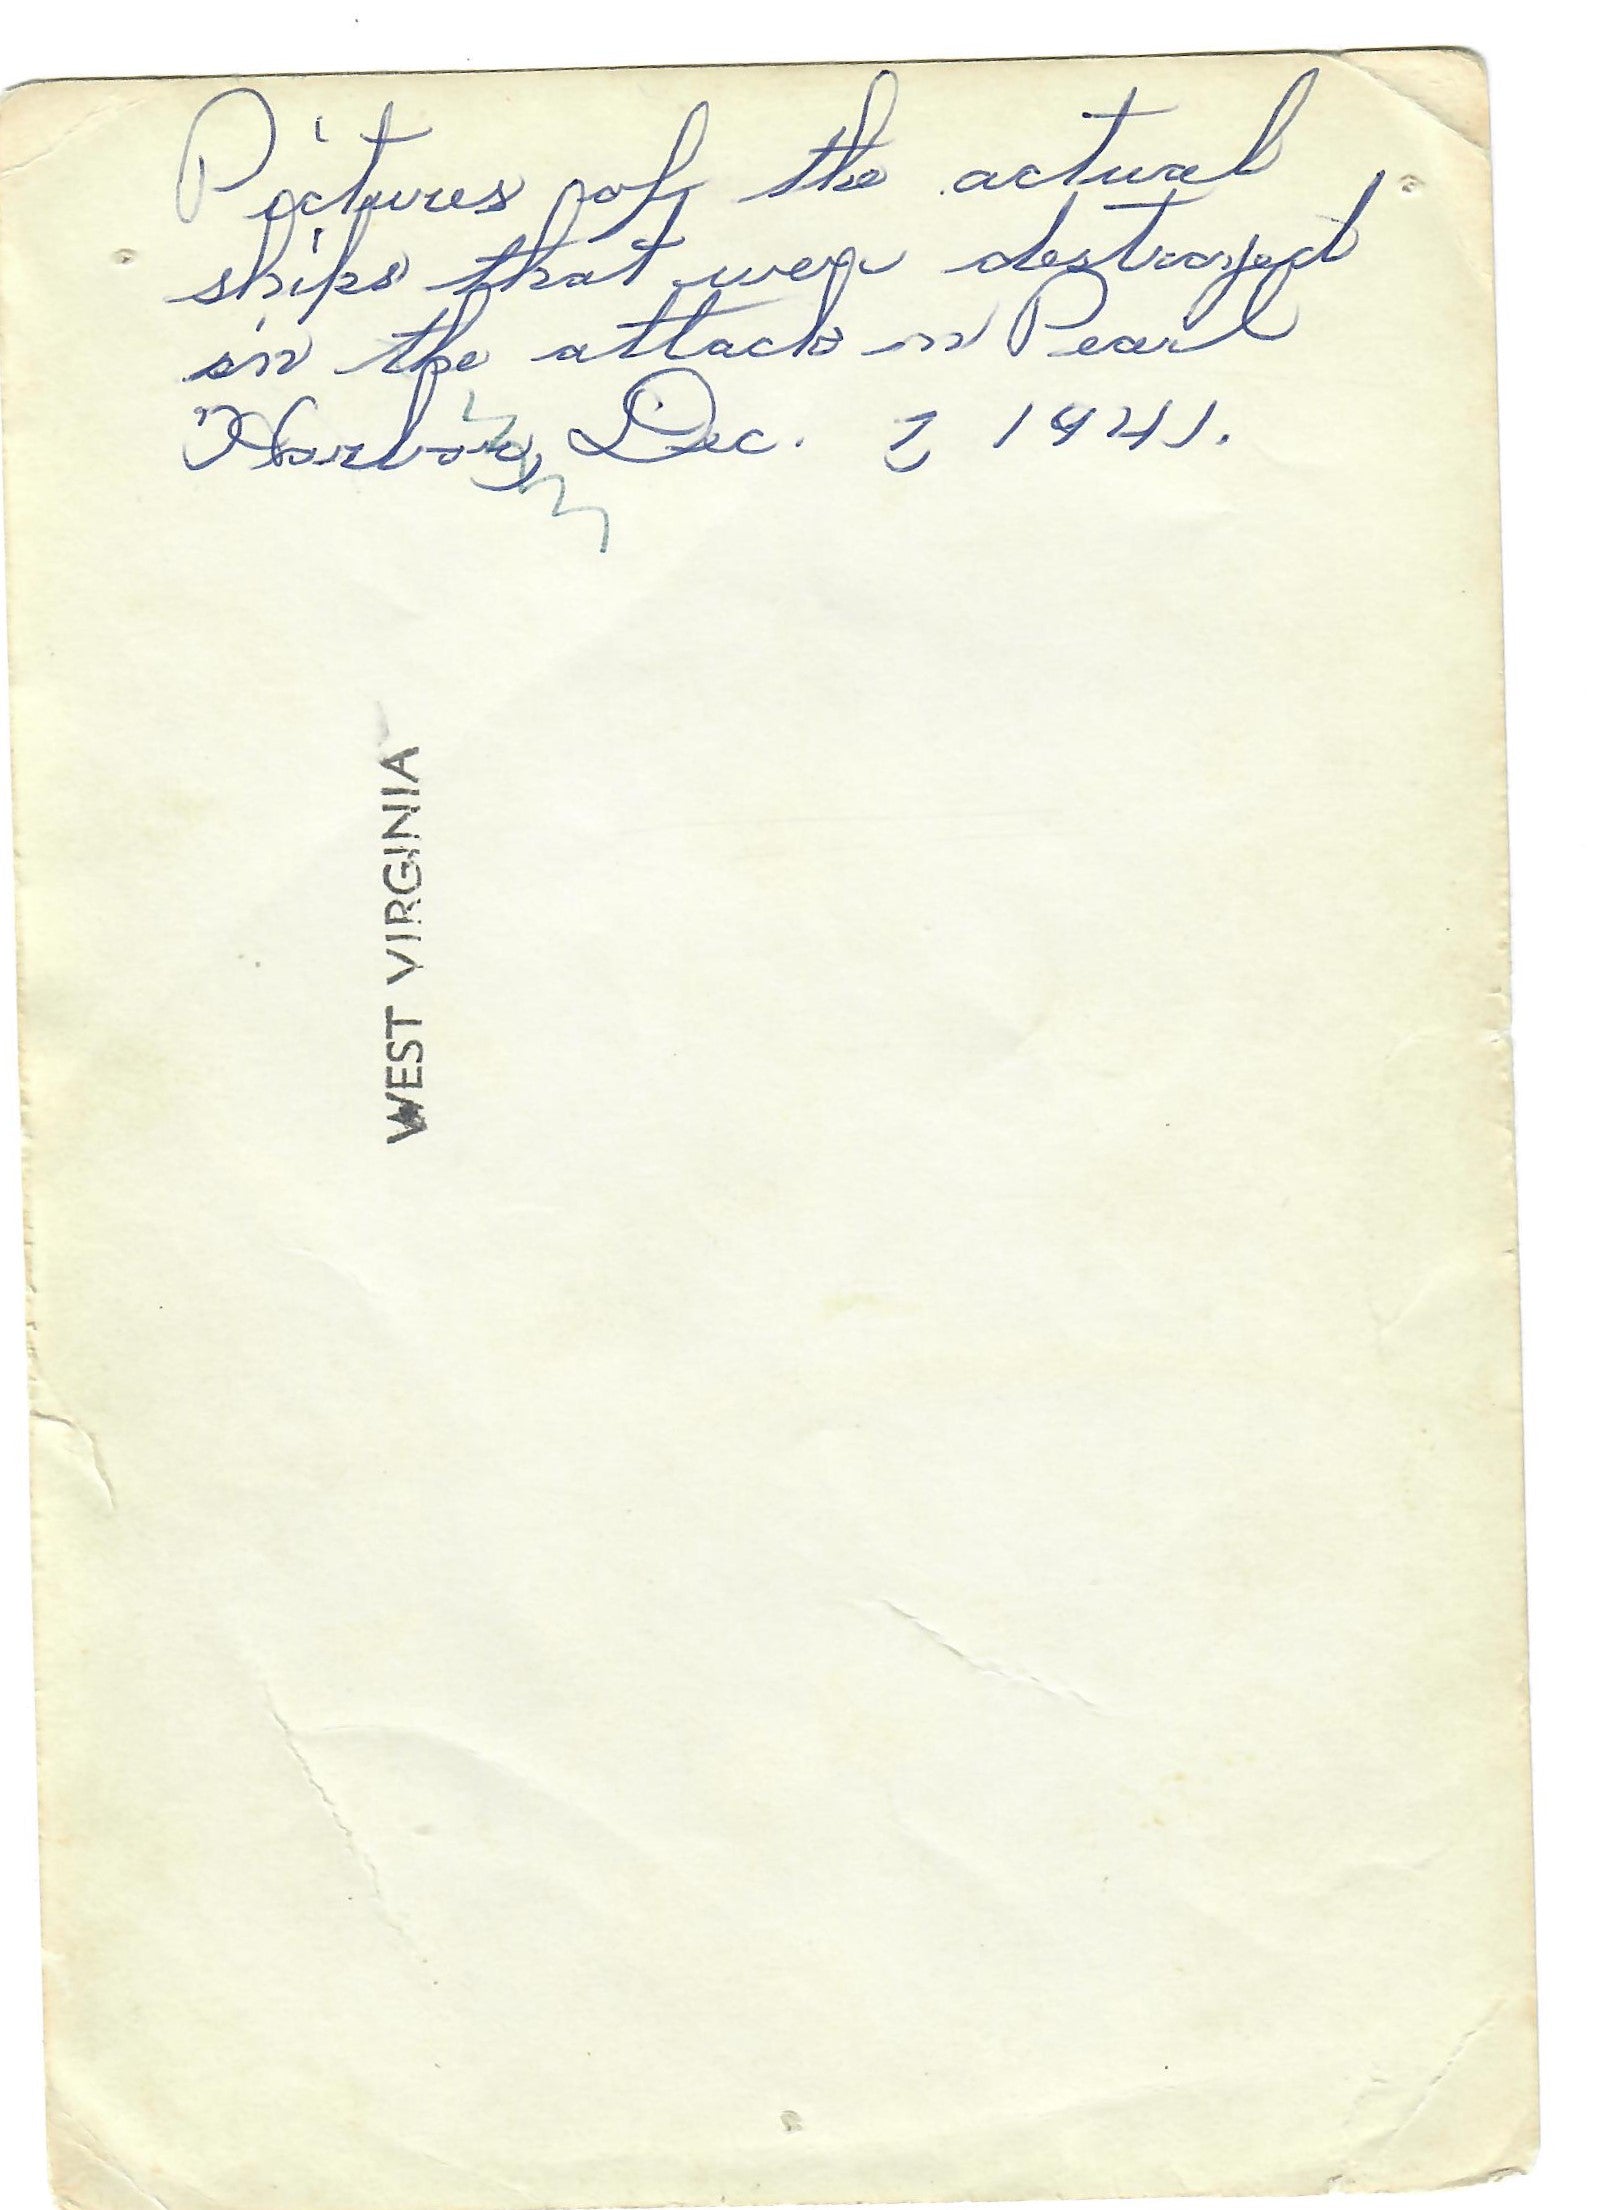 Pictures of the actual
ships that were destroyed
in the attack in Pearl
Harbor, Dec. 7 1941.
WEST VIRGINIA